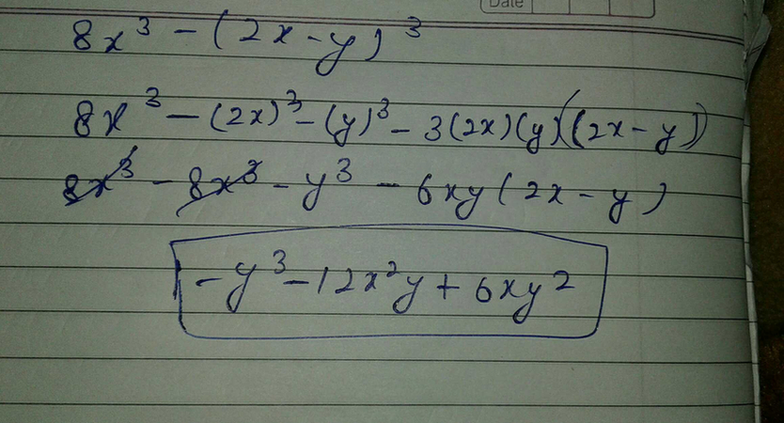 Date
8x³ - (2x-y)³
8x³ - (2x)³ - (y)³ - 3(2x)(y)((2x-y))
8x³ - 8x³ - y³ - 6xy(2x-y)
-y³ - 12x²y + 6xy²